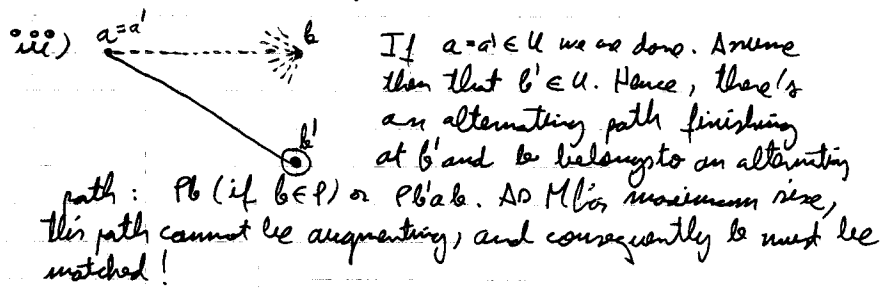 iii) a=a' b If a=a' ∈ U we are done. Assume
then that b' ∈ U. Hence, there's
an alternating path finishing
b' at b' and b belongs to an alternating
path: Pb (if b∈P) or Pb'ab. As M has maximum size,
this path cannot be augmenting, and consequently b must be
matched!